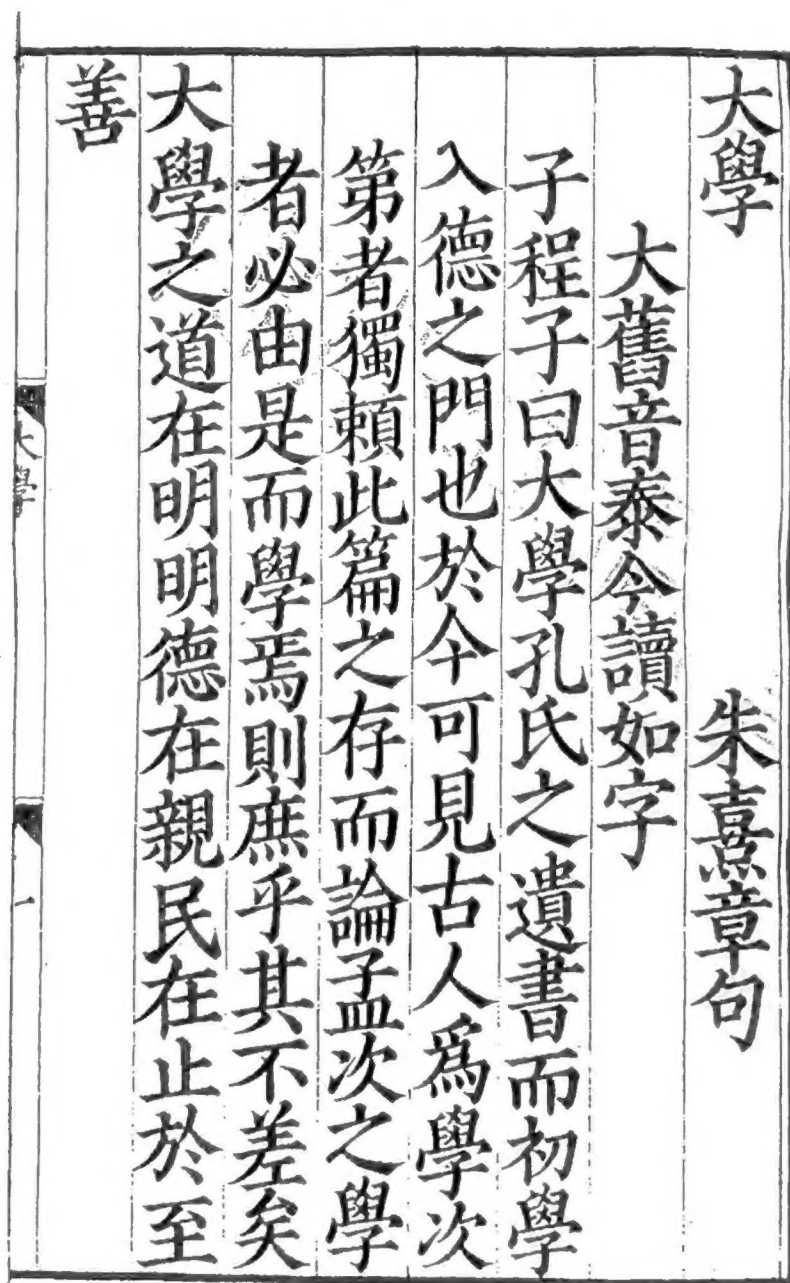 大學　朱熹章句
大舊音泰今讀如字
子程子曰大學孔氏之遺書而初學
入德之門也於今可見古人爲學次
第者獨頼此篇之存而論孟次之學
者必由是而學焉則庶乎其不差矣
大學之道在明明德在親民在止於至
善
大學
一